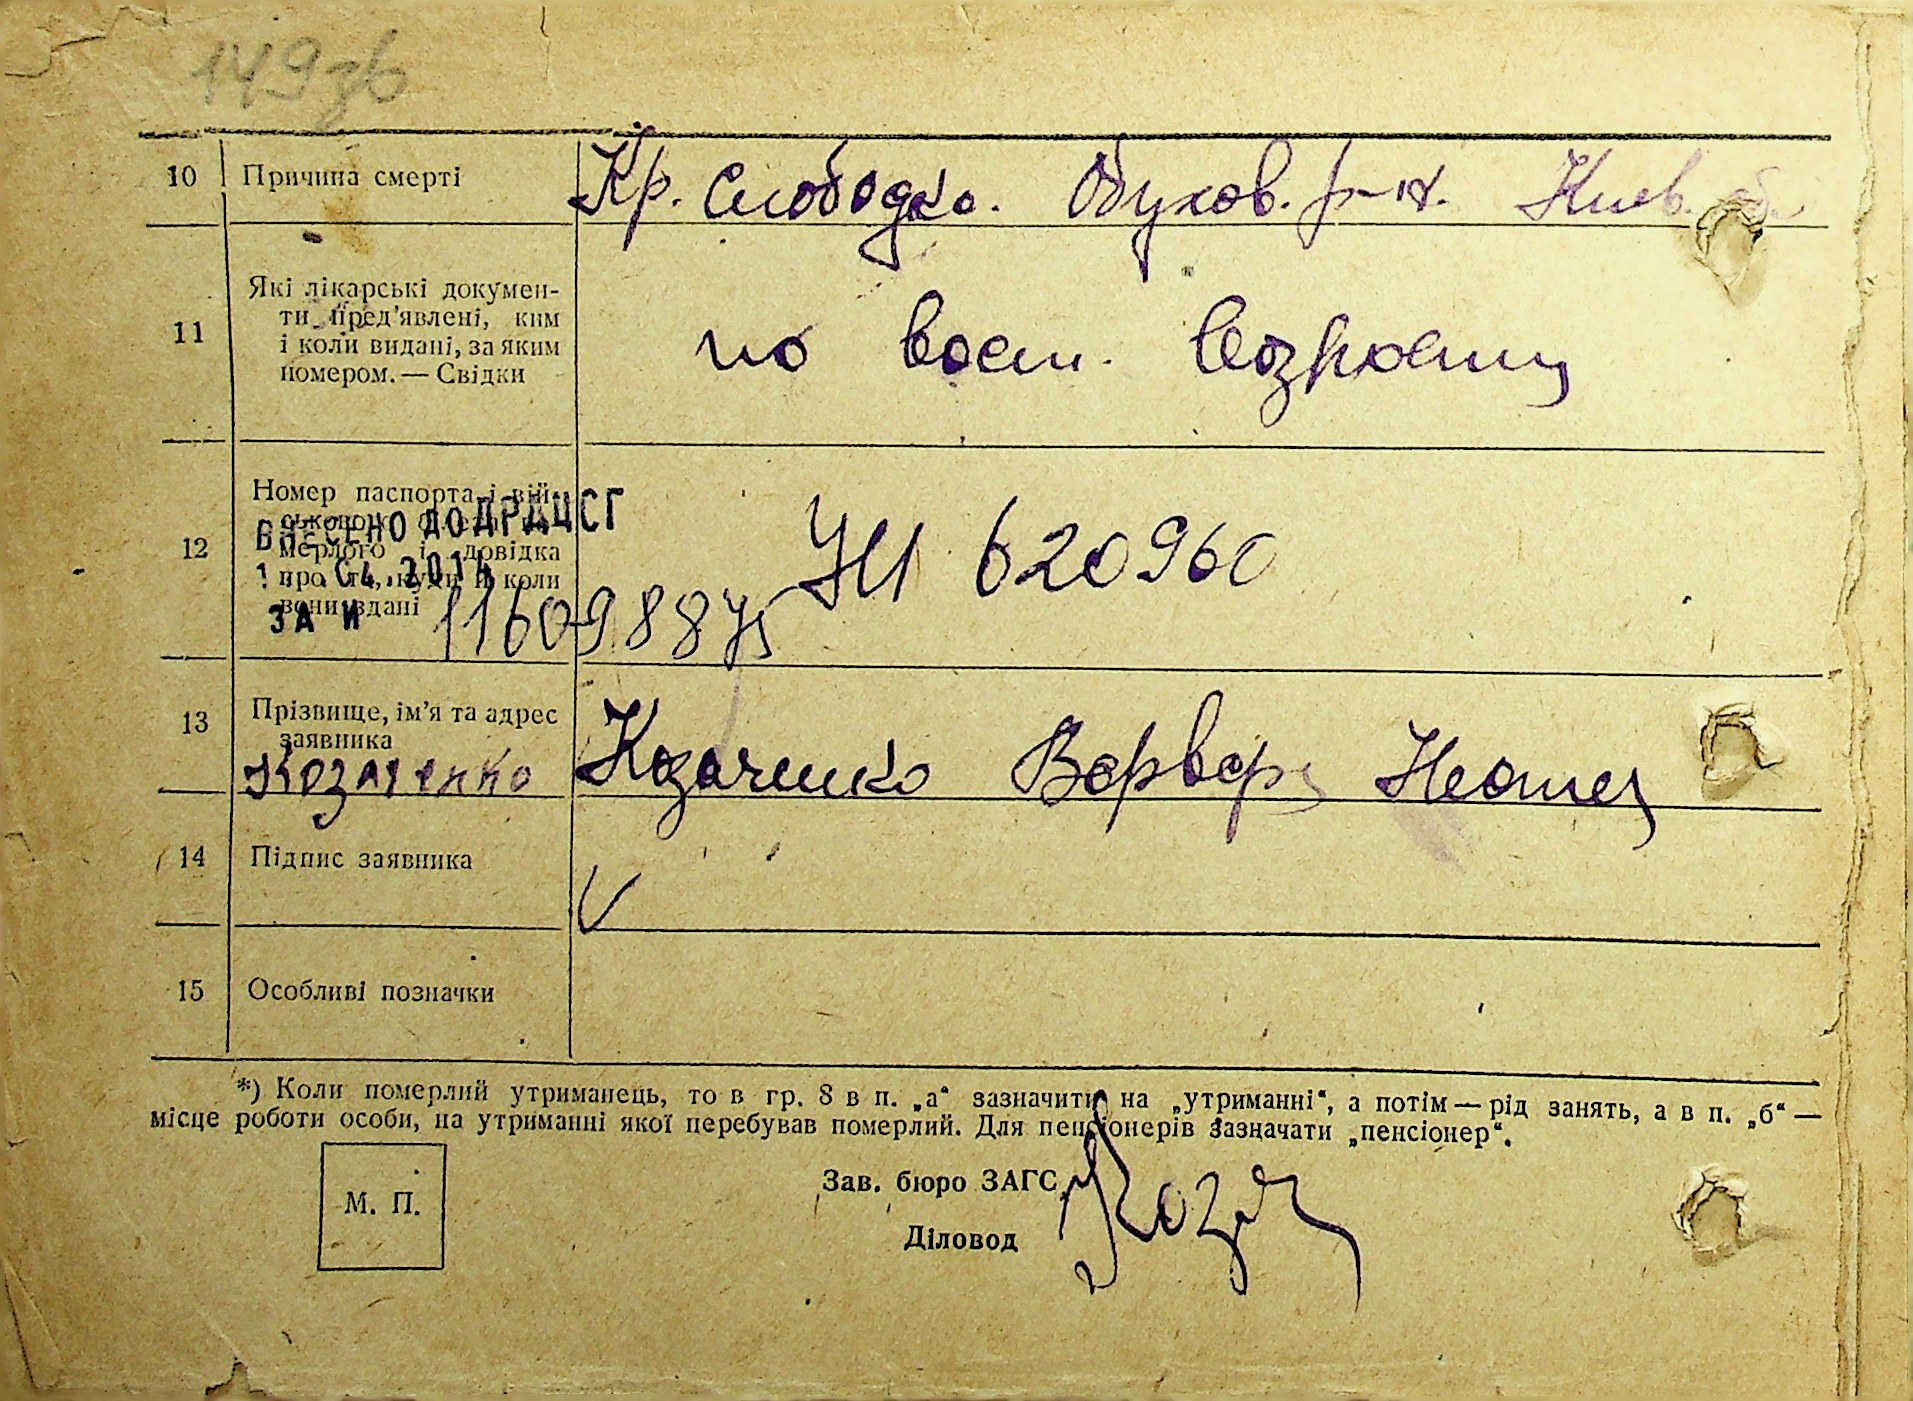 149зв
10 Причина смерті Кр. Слободка. Обухов. р-н. Киев. об.
11 Які лікарські докумен-
ти пред'явлені, ким
і коли видані, за яким
номером. — Свідки
по восп. возрасту
12 Номер паспорта і вій-
ськового
мерлого і довідка
про те, куди й коли
вони здані
ВНЕСЕНО ДО ДРАЦСГ
04.2014
ЗА И 11609887
620960
13 Прізвище, ім'я та адрес
заявника
Козаченко Козаченко Варвара
14 Підпис заявника V
15 Особливі позначки
*) Коли померлий утриманець, то в гр. 8 в п. „а“ зазначити на „утриманні“, а потім — рід занять, а в п. „б“ —
місце роботи особи, на утриманні якої перебував померлий. Для пенсіонерів зазначати „пенсіонер“.
М. П.
Зав. бюро ЗАГС
Діловод